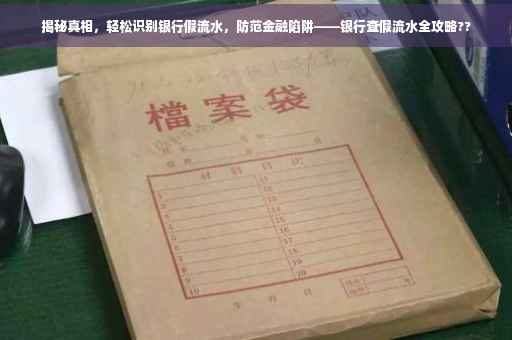 揭秘真相，轻松识别银行假流水，防范金融陷阱——银行查假流水全攻略??
檔案袋
材料目次
1
2
3
4
5
6
7
8
9
10
11
12
13
14
15
16
17
18
19
20
年 月 日